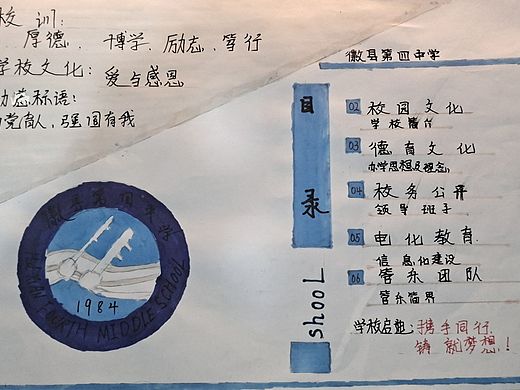 校训:
厚德、博学、励志、笃行
学校文化: 爱与感恩
励志标语:
为党育人,强国有我
徽县第四中学
目
录
02 校园文化
学校简介
03 德育文化
办学思想及理念
04 校务公开
领导班子
05 电化教育
信息化建设
06 管乐团队
管乐简介
shooL
学校启迪: 携手同行
铸就梦想!
徽县第四中学
FOURTH MIDDLE SCHOOL
1984